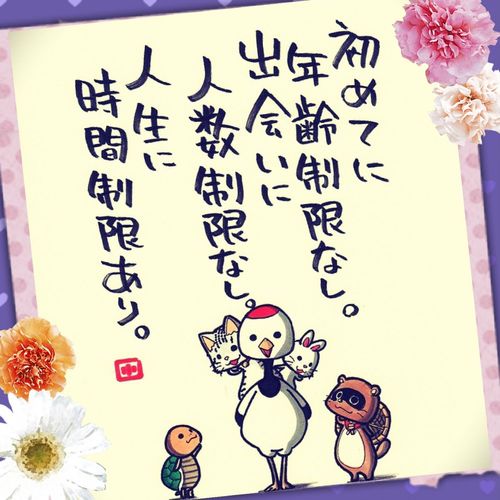 初めてに
年齢制限なし。
出会いに
人数制限なし。
人生に
時間制限あり。
中